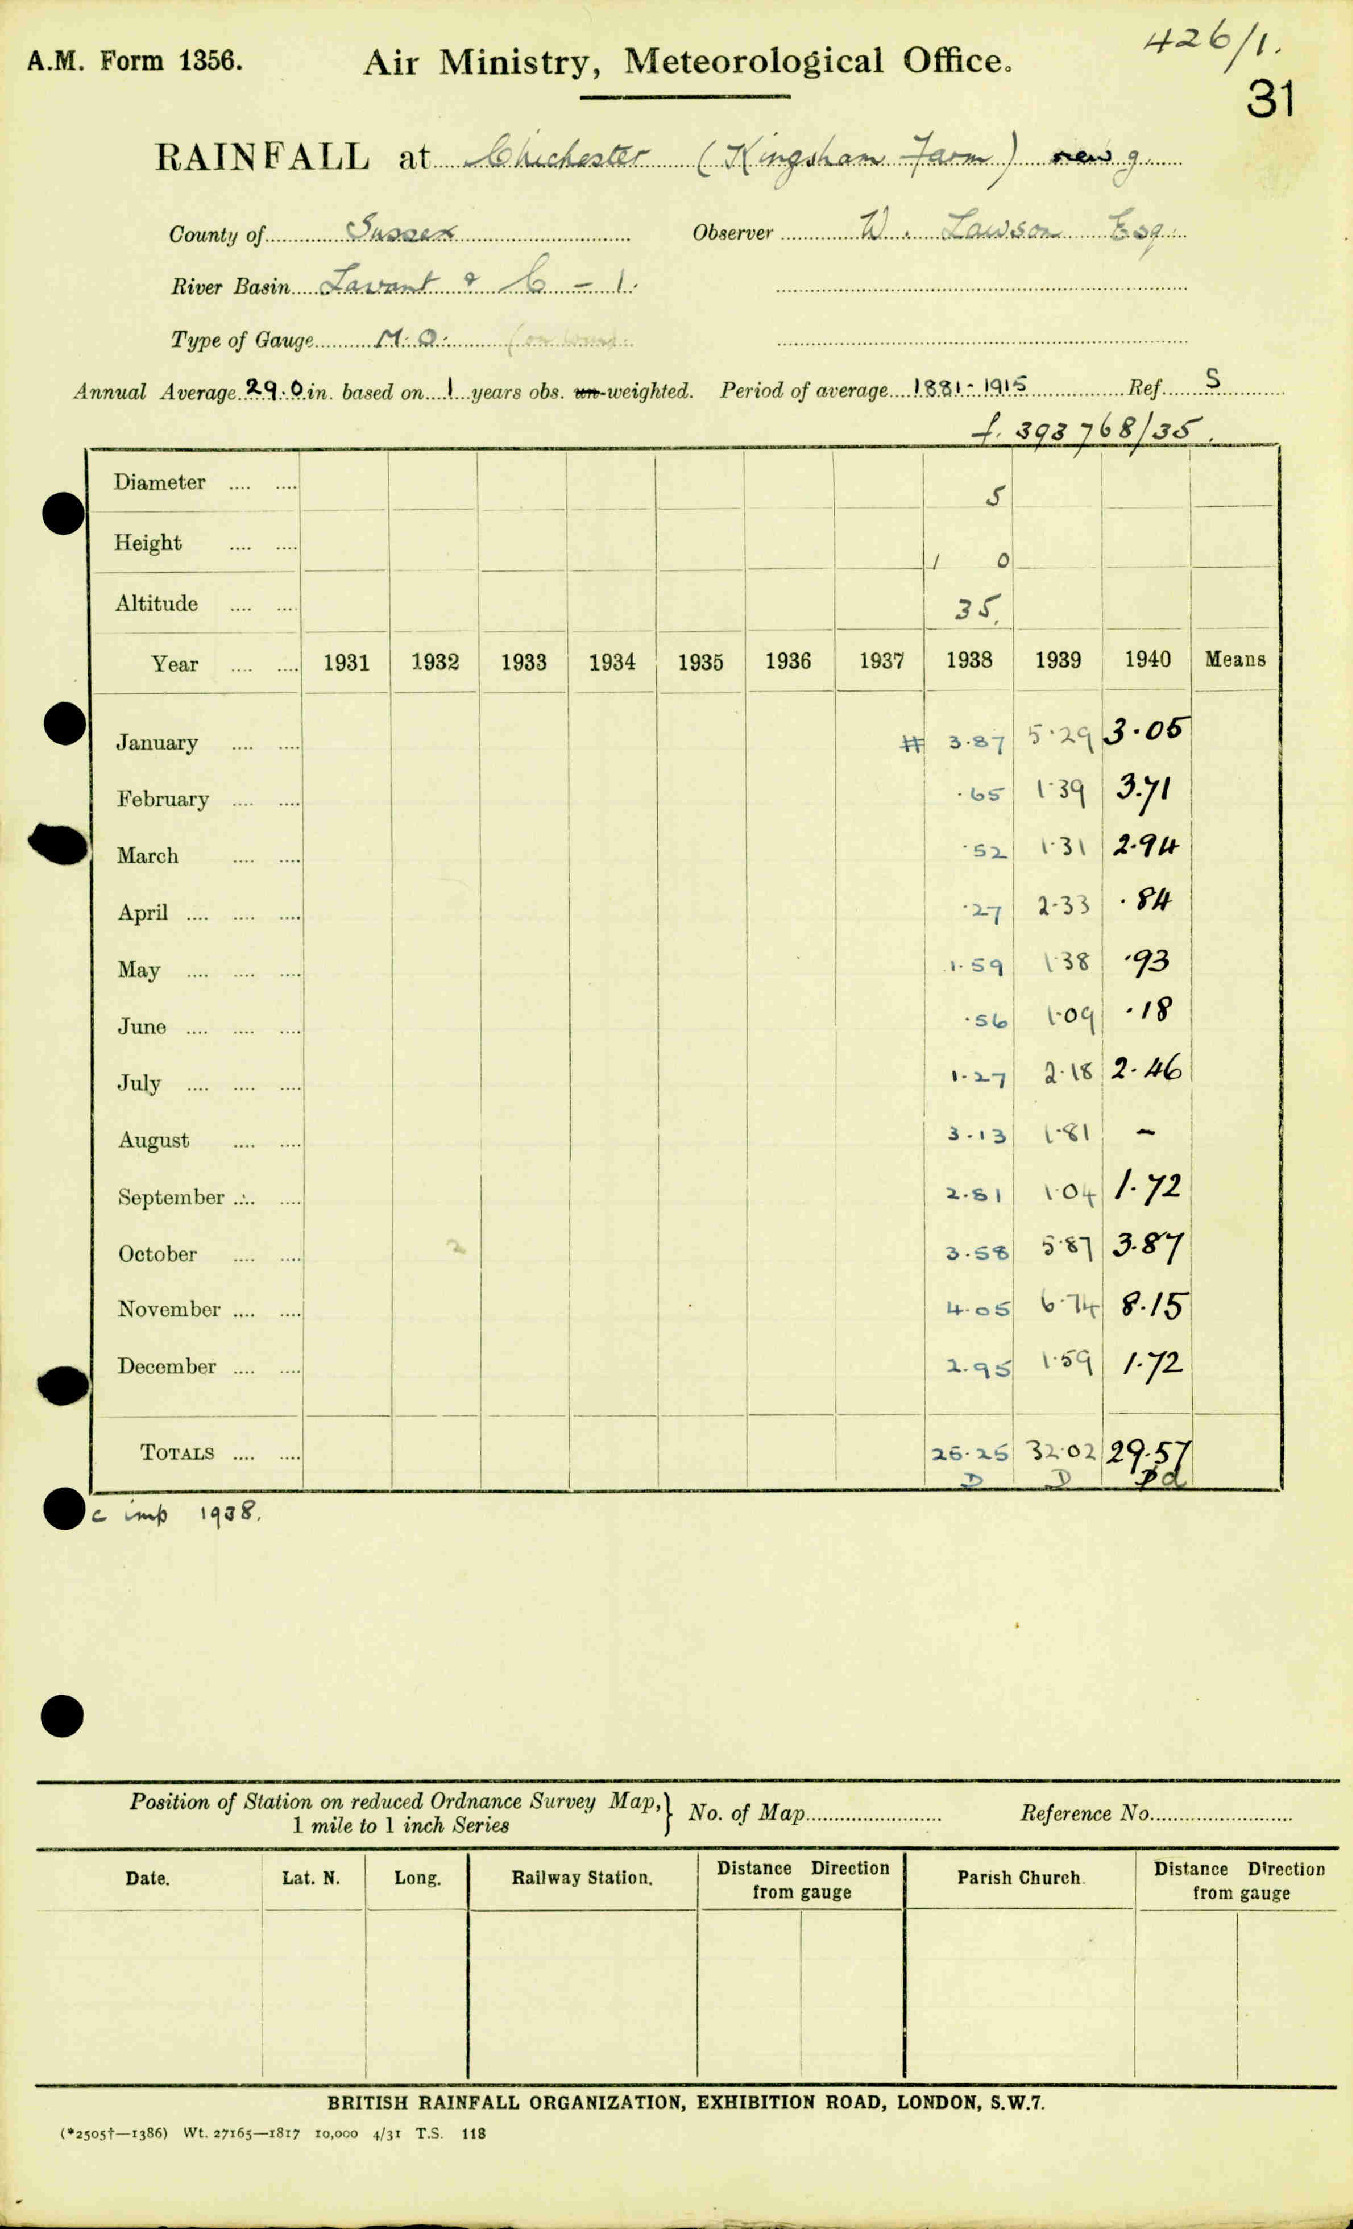 426/1.
A.M. Form 1356. Air Ministry, Meteorological Office.
31
RAINFALL at Chichester (Kingsham Farm) new g.
County of Sussex Observer W. Lawson Esq.
River Basin Lavant & C - 1.
Type of Gauge M.O.
Annual Average 29.0 in. based on 1 years obs. un-weighted. Period of average 1881-1915 Ref. S
f. 393768/35.
Diameter .... .... 5
Height .... .... 1 0
Altitude .... .... 35.
Year .... .... 1931 1932 1933 1934 1935 1936 1937 1938 1939 1940 Means
January .... .... # 3.87 5.29 3.05
February .... .... .65 1.39 3.71
March .... .... .52 1.31 2.94
April .... .... .... .27 2.33 .84
May .... .... .... 1.59 1.38 .93
June .... .... .... .56 1.09 .18
July .... .... .... 1.27 2.18 2.46
August .... .... 3.13 1.81 -
September .... .... 2.81 1.04 1.72
October .... .... 3.58 5.87 3.87
November .... .... 4.05 6.74 8.15
December .... .... 2.95 1.59 1.72
TOTALS .... .... 25.25 32.02 29.57
D D D d
c imp 1938.
Position of Station on reduced Ordnance Survey Map, } No. of Map Reference No.
1 mile to 1 inch Series
Date. Lat. N. Long. Railway Station. Distance Direction from gauge Parish Church. Distance Direction from gauge
BRITISH RAINFALL ORGANIZATION, EXHIBITION ROAD, LONDON, S.W.7.
(*2505†—1386) Wt. 27165—1817 10,000 4/31 T.S. 118